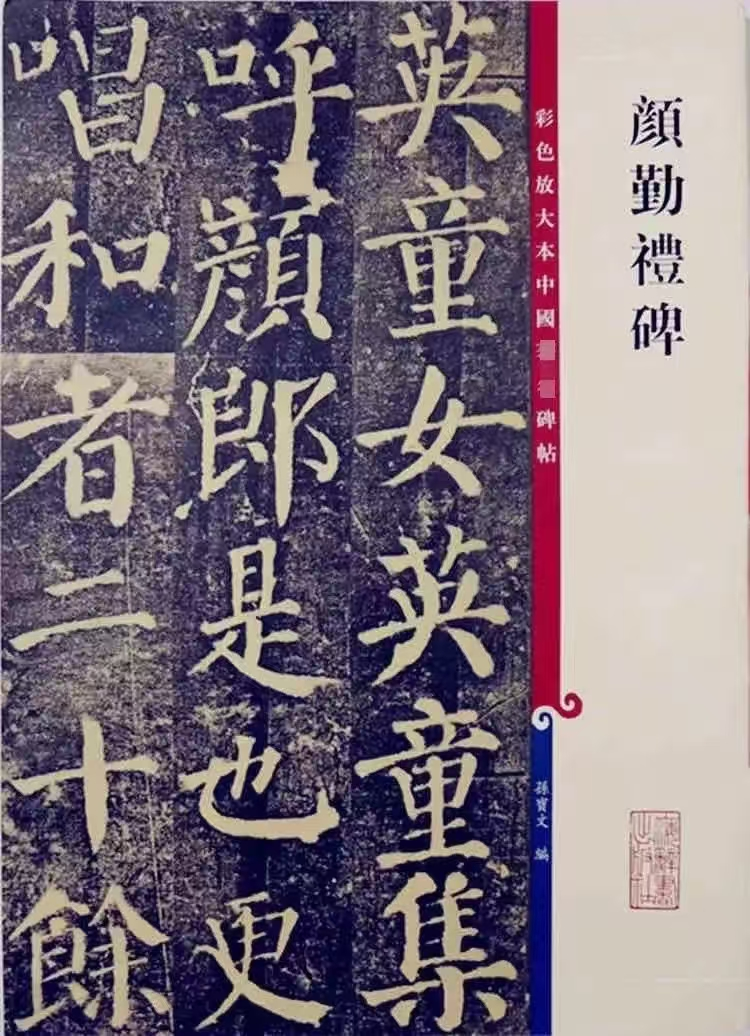 顏勤禮碑
彩色放大本中國碑帖
孫寶文 編
英童女英童集
呼顏郎是也更
唱和者二十餘